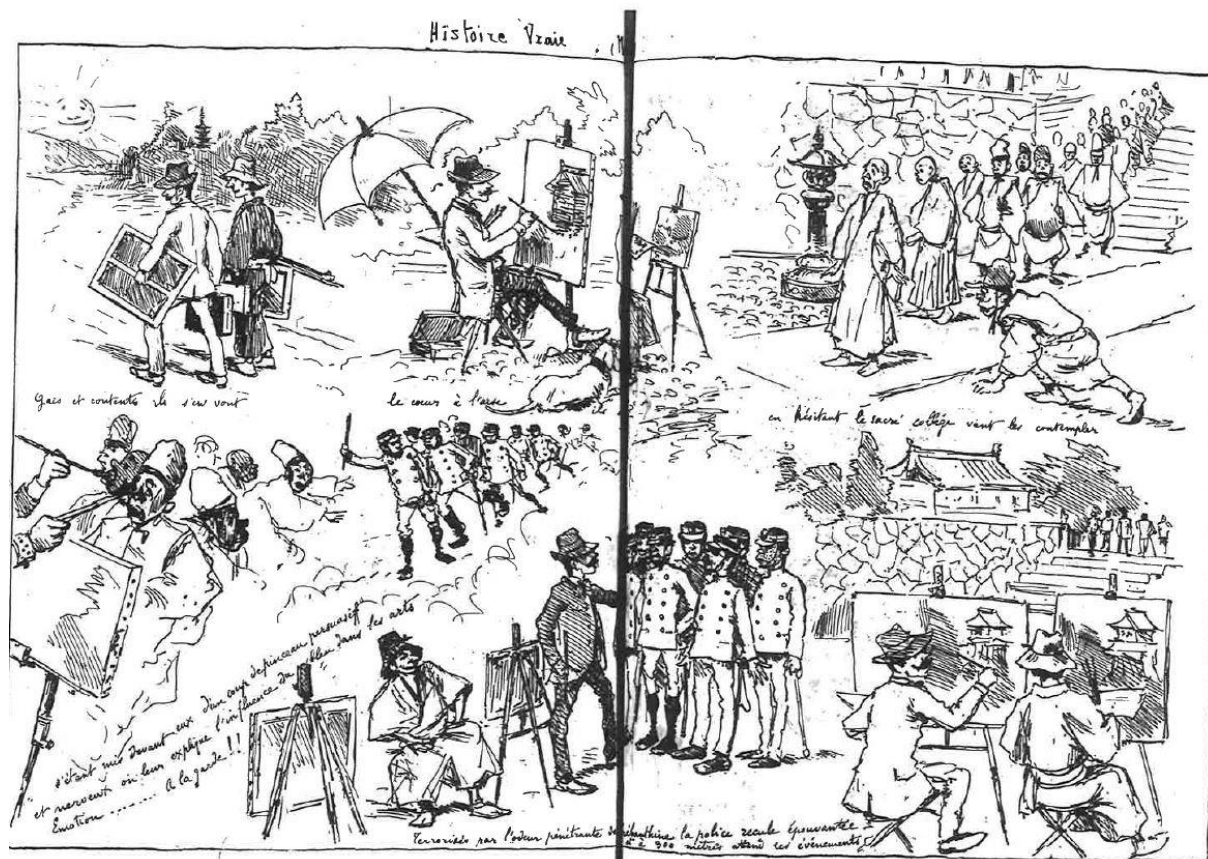 Histoire Vraie
Gais et contents ils s'en vont
le coeur à l'aise
en hésitant le sacré collège vient les contempler
s'étant mis devant eux d'un coup de pinceau persuasif
et nerveux on leur explique l'influence du bleu dans les arts
Emotion ........ A la garde !!
Terrorisés par l'odeur pénétrante la police recule épouvantée
à 300 mètres attend les événements